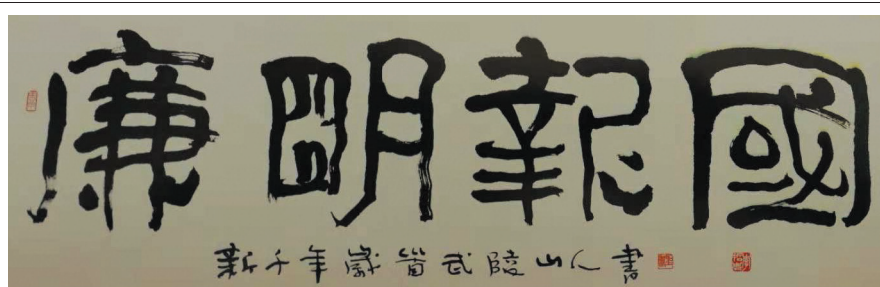 廉明報國
新千年歲首武陵山人書